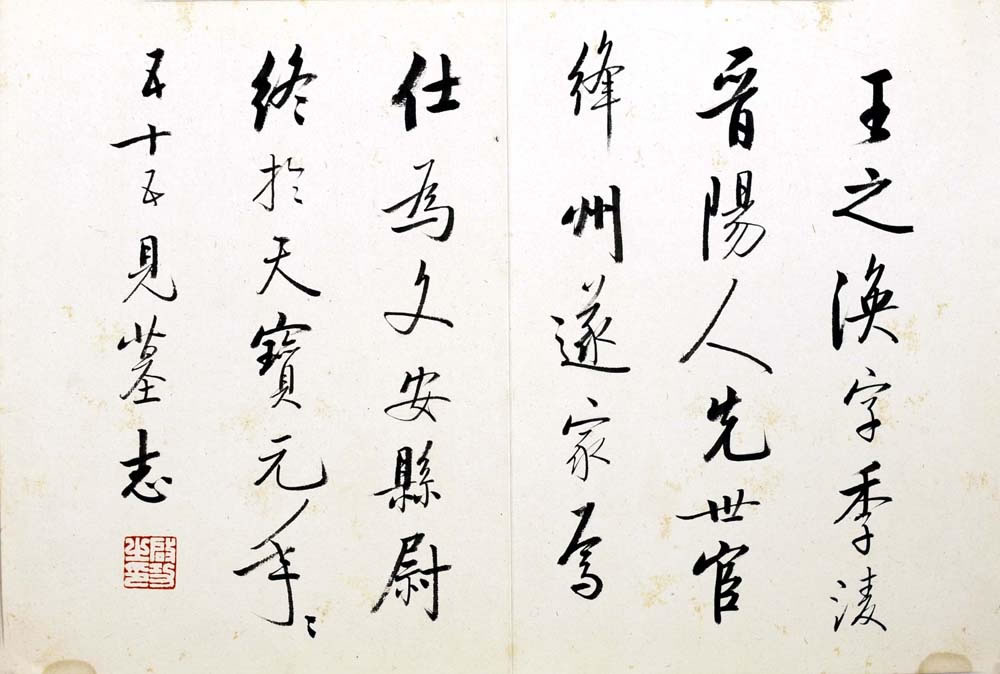 王之渙字季淩
晉陽人先世官
絳州遂家焉
仕為文安縣尉
終於天寶元年〻
五十五見墓志
啟功之印